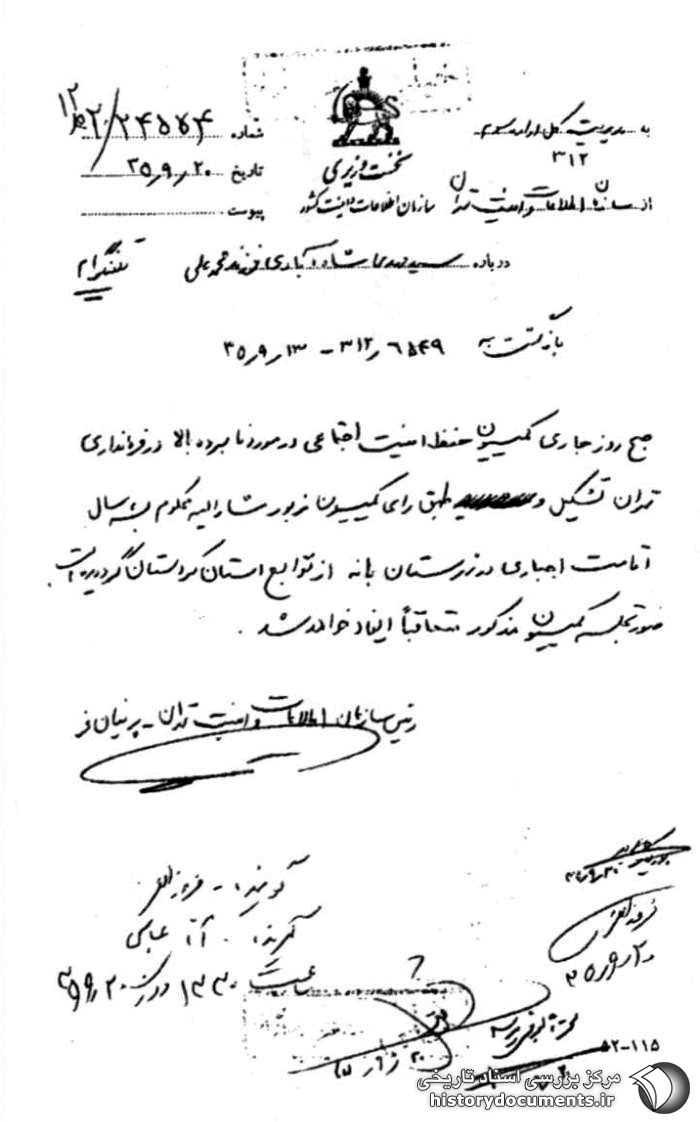 به مدیریت کل اداره سوم
۳۱۲
از سازمان اطلاعات و امنیت تهران
نخست وزیری
سازمان اطلاعات و امنیت کشور
شماره ۲۴۵۷۴/۲۰ ه ۱۲
تاریخ ۳۵٫۹٫۲۰
پیوست
درباره سید مهدی شاه آبادی فرزند محمد علی
تلفنگرام
بازگشت به ۳۱۲٫۶۵۴۹ – ۳۵٫۹٫۱۳
صبح روز جاری کمیسیون حفظ امنیت اجتماعی در مورد نامبرده بالا در فرمانداری
تهران تشکیل و طبق رای کمیسیون مزبور مشارالیه محکوم به سال
اقامت اجباری در شهرستان بانه از توابع استان کردستان گردیده است.
صورتجلسه کمیسیون مذکور متعاقباً ایفاد خواهد شد.
رئیس سازمان اطلاعات و امنیت تهران - پرنیان فر
گوینده -
گیرنده - آقا عباسی
ساعت ۱۳۳۰ روز ۳۵٫۹٫۲۰
۳۵٫۹٫۲۰
۵۲-۱۱۵
مرکز بررسی اسناد تاریخی
historydocuments.ir